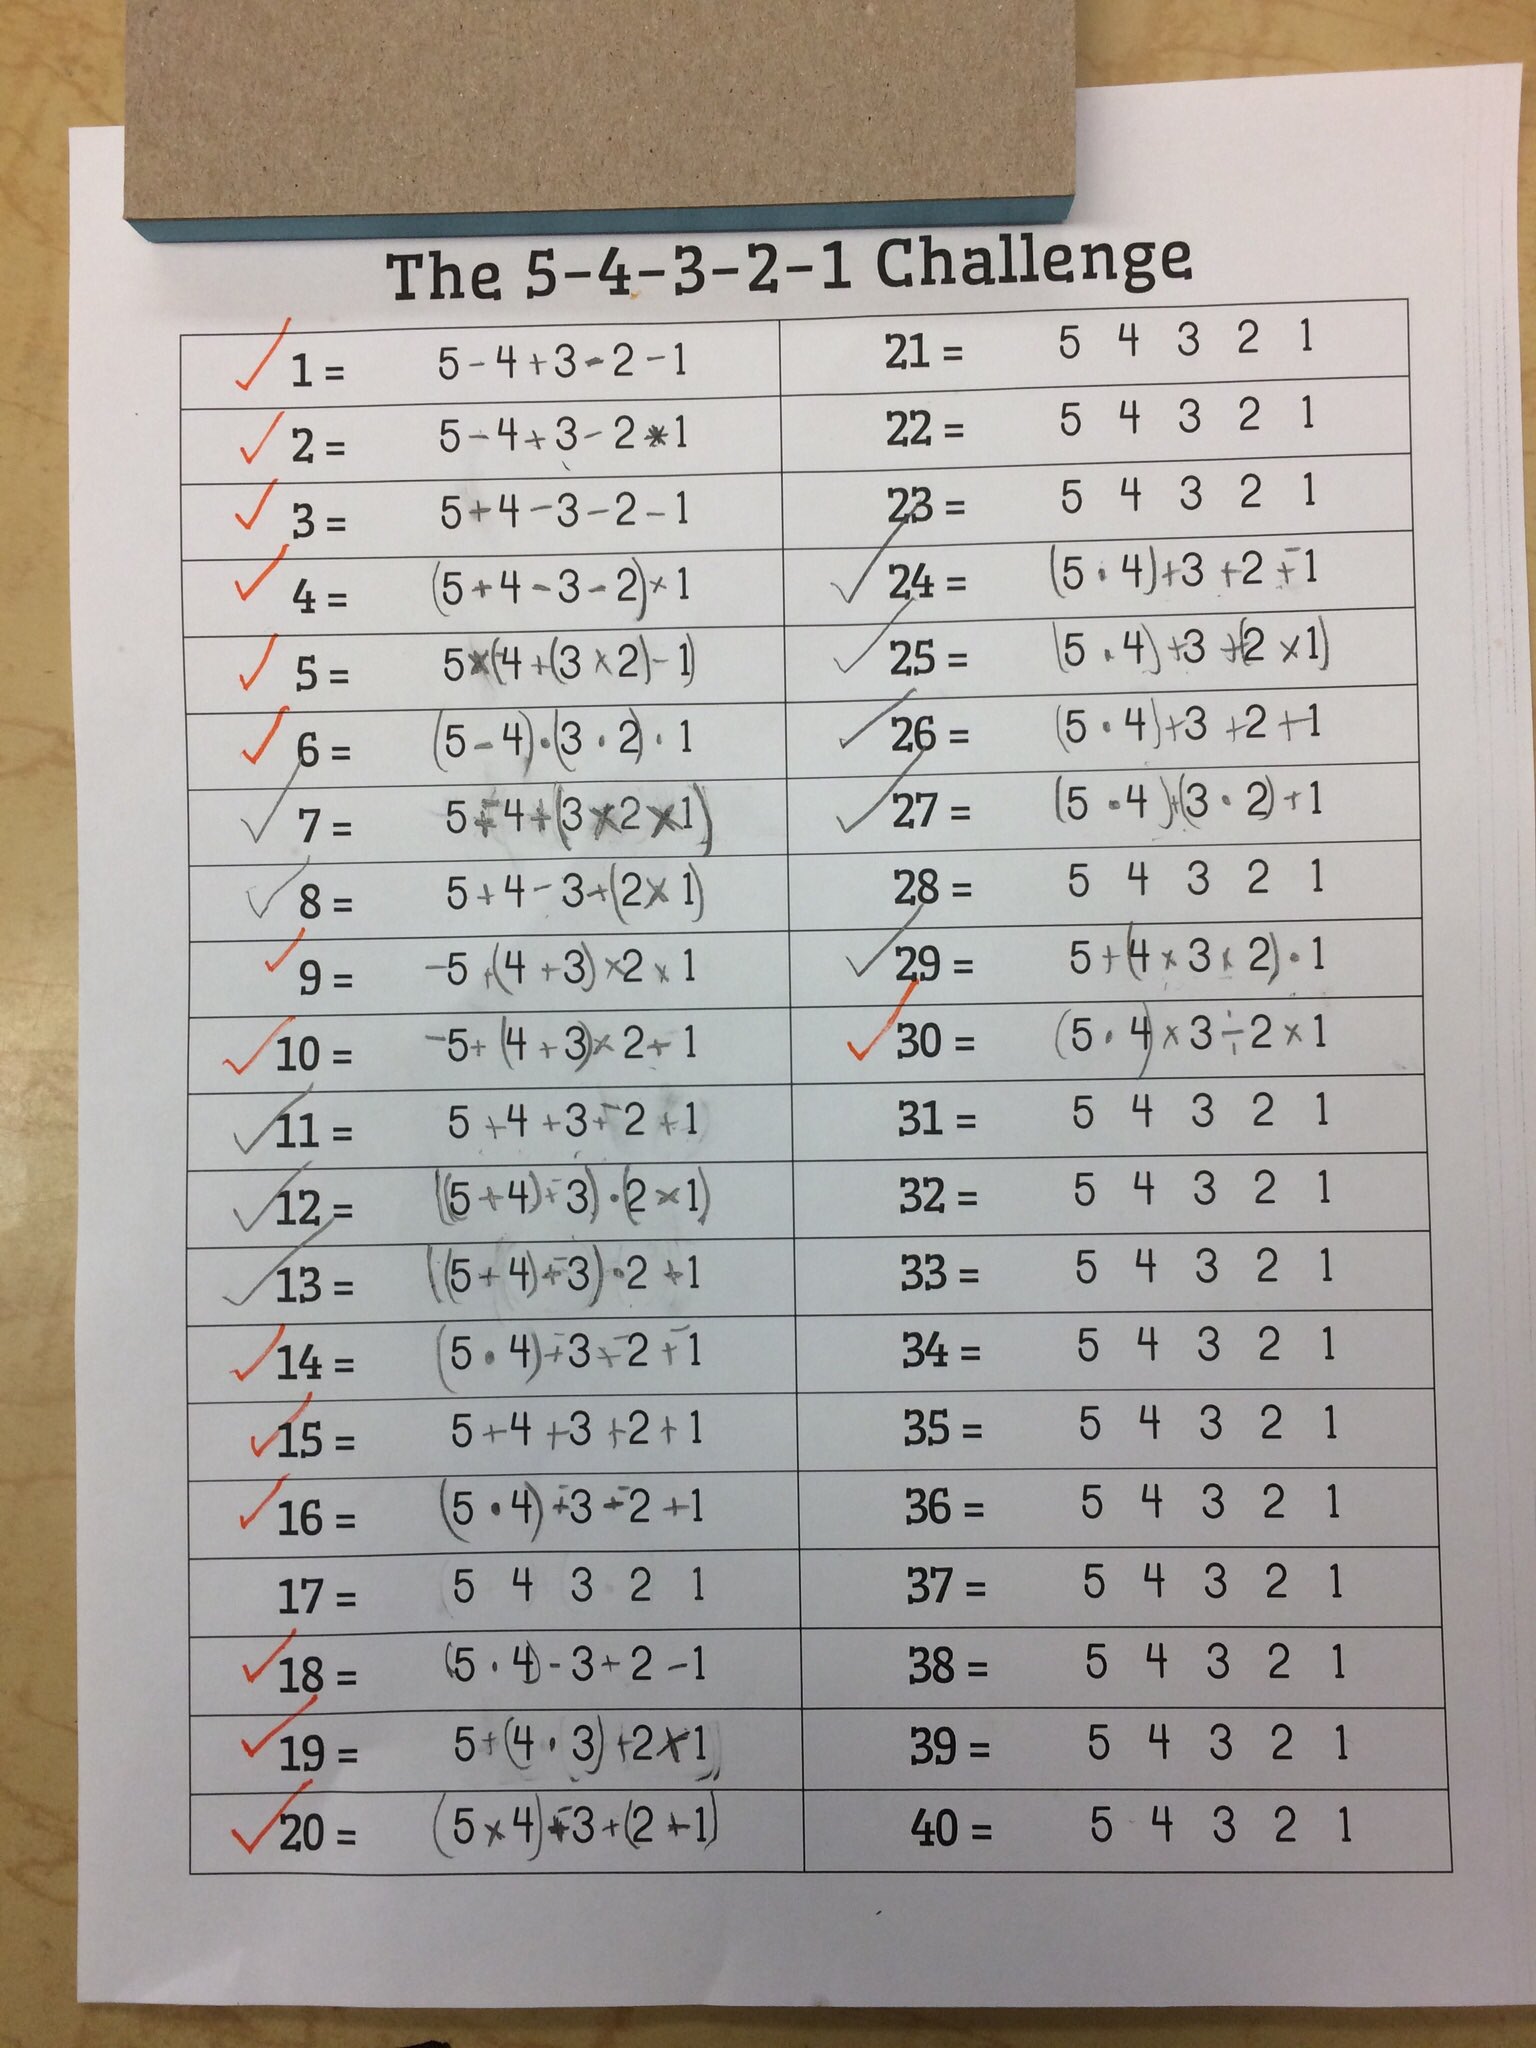 The 5-4-3-2-1 Challenge
1 = 5 - 4 + 3 - 2 - 1
2 = 5 - 4 + 3 - 2 * 1
3 = 5 + 4 - 3 - 2 - 1
4 = (5 + 4 - 3 - 2) × 1
5 = 5 × (4 + (3 × 2) - 1)
6 = (5 - 4) · (3 · 2) · 1
7 = 5 + -4 + (3 × 2 × 1)
8 = 5 + 4 - 3 + (2 × 1)
9 = -5 + (4 + 3) × 2 × 1
10 = -5 + (4 + 3) × 2 + 1
11 = 5 + 4 + 3 + -2 + 1
12 = ((5 + 4) + -3) · (2 × 1)
13 = ((5 + 4) + -3) · 2 + 1
14 = (5 · 4) + -3 + -2 + -1
15 = 5 + 4 + 3 + 2 + 1
16 = (5 · 4) + -3 + -2 + 1
17 = 5 4 3 2 1
18 = (5 · 4) - 3 + 2 - 1
19 = 5 + (4 · 3) + 2 × 1
20 = (5 × 4) + -3 + (2 + 1)
21 = 5 4 3 2 1
22 = 5 4 3 2 1
23 = 5 4 3 2 1
24 = (5 · 4) + 3 + 2 + -1
25 = (5 · 4) + 3 + (2 × 1)
26 = (5 · 4) + 3 + 2 + 1
27 = (5 · 4) + (3 · 2) + 1
28 = 5 4 3 2 1
29 = 5 + (4 × 3 × 2) · 1
30 = (5 · 4) × 3 ÷ 2 × 1
31 = 5 4 3 2 1
32 = 5 4 3 2 1
33 = 5 4 3 2 1
34 = 5 4 3 2 1
35 = 5 4 3 2 1
36 = 5 4 3 2 1
37 = 5 4 3 2 1
38 = 5 4 3 2 1
39 = 5 4 3 2 1
40 = 5 4 3 2 1